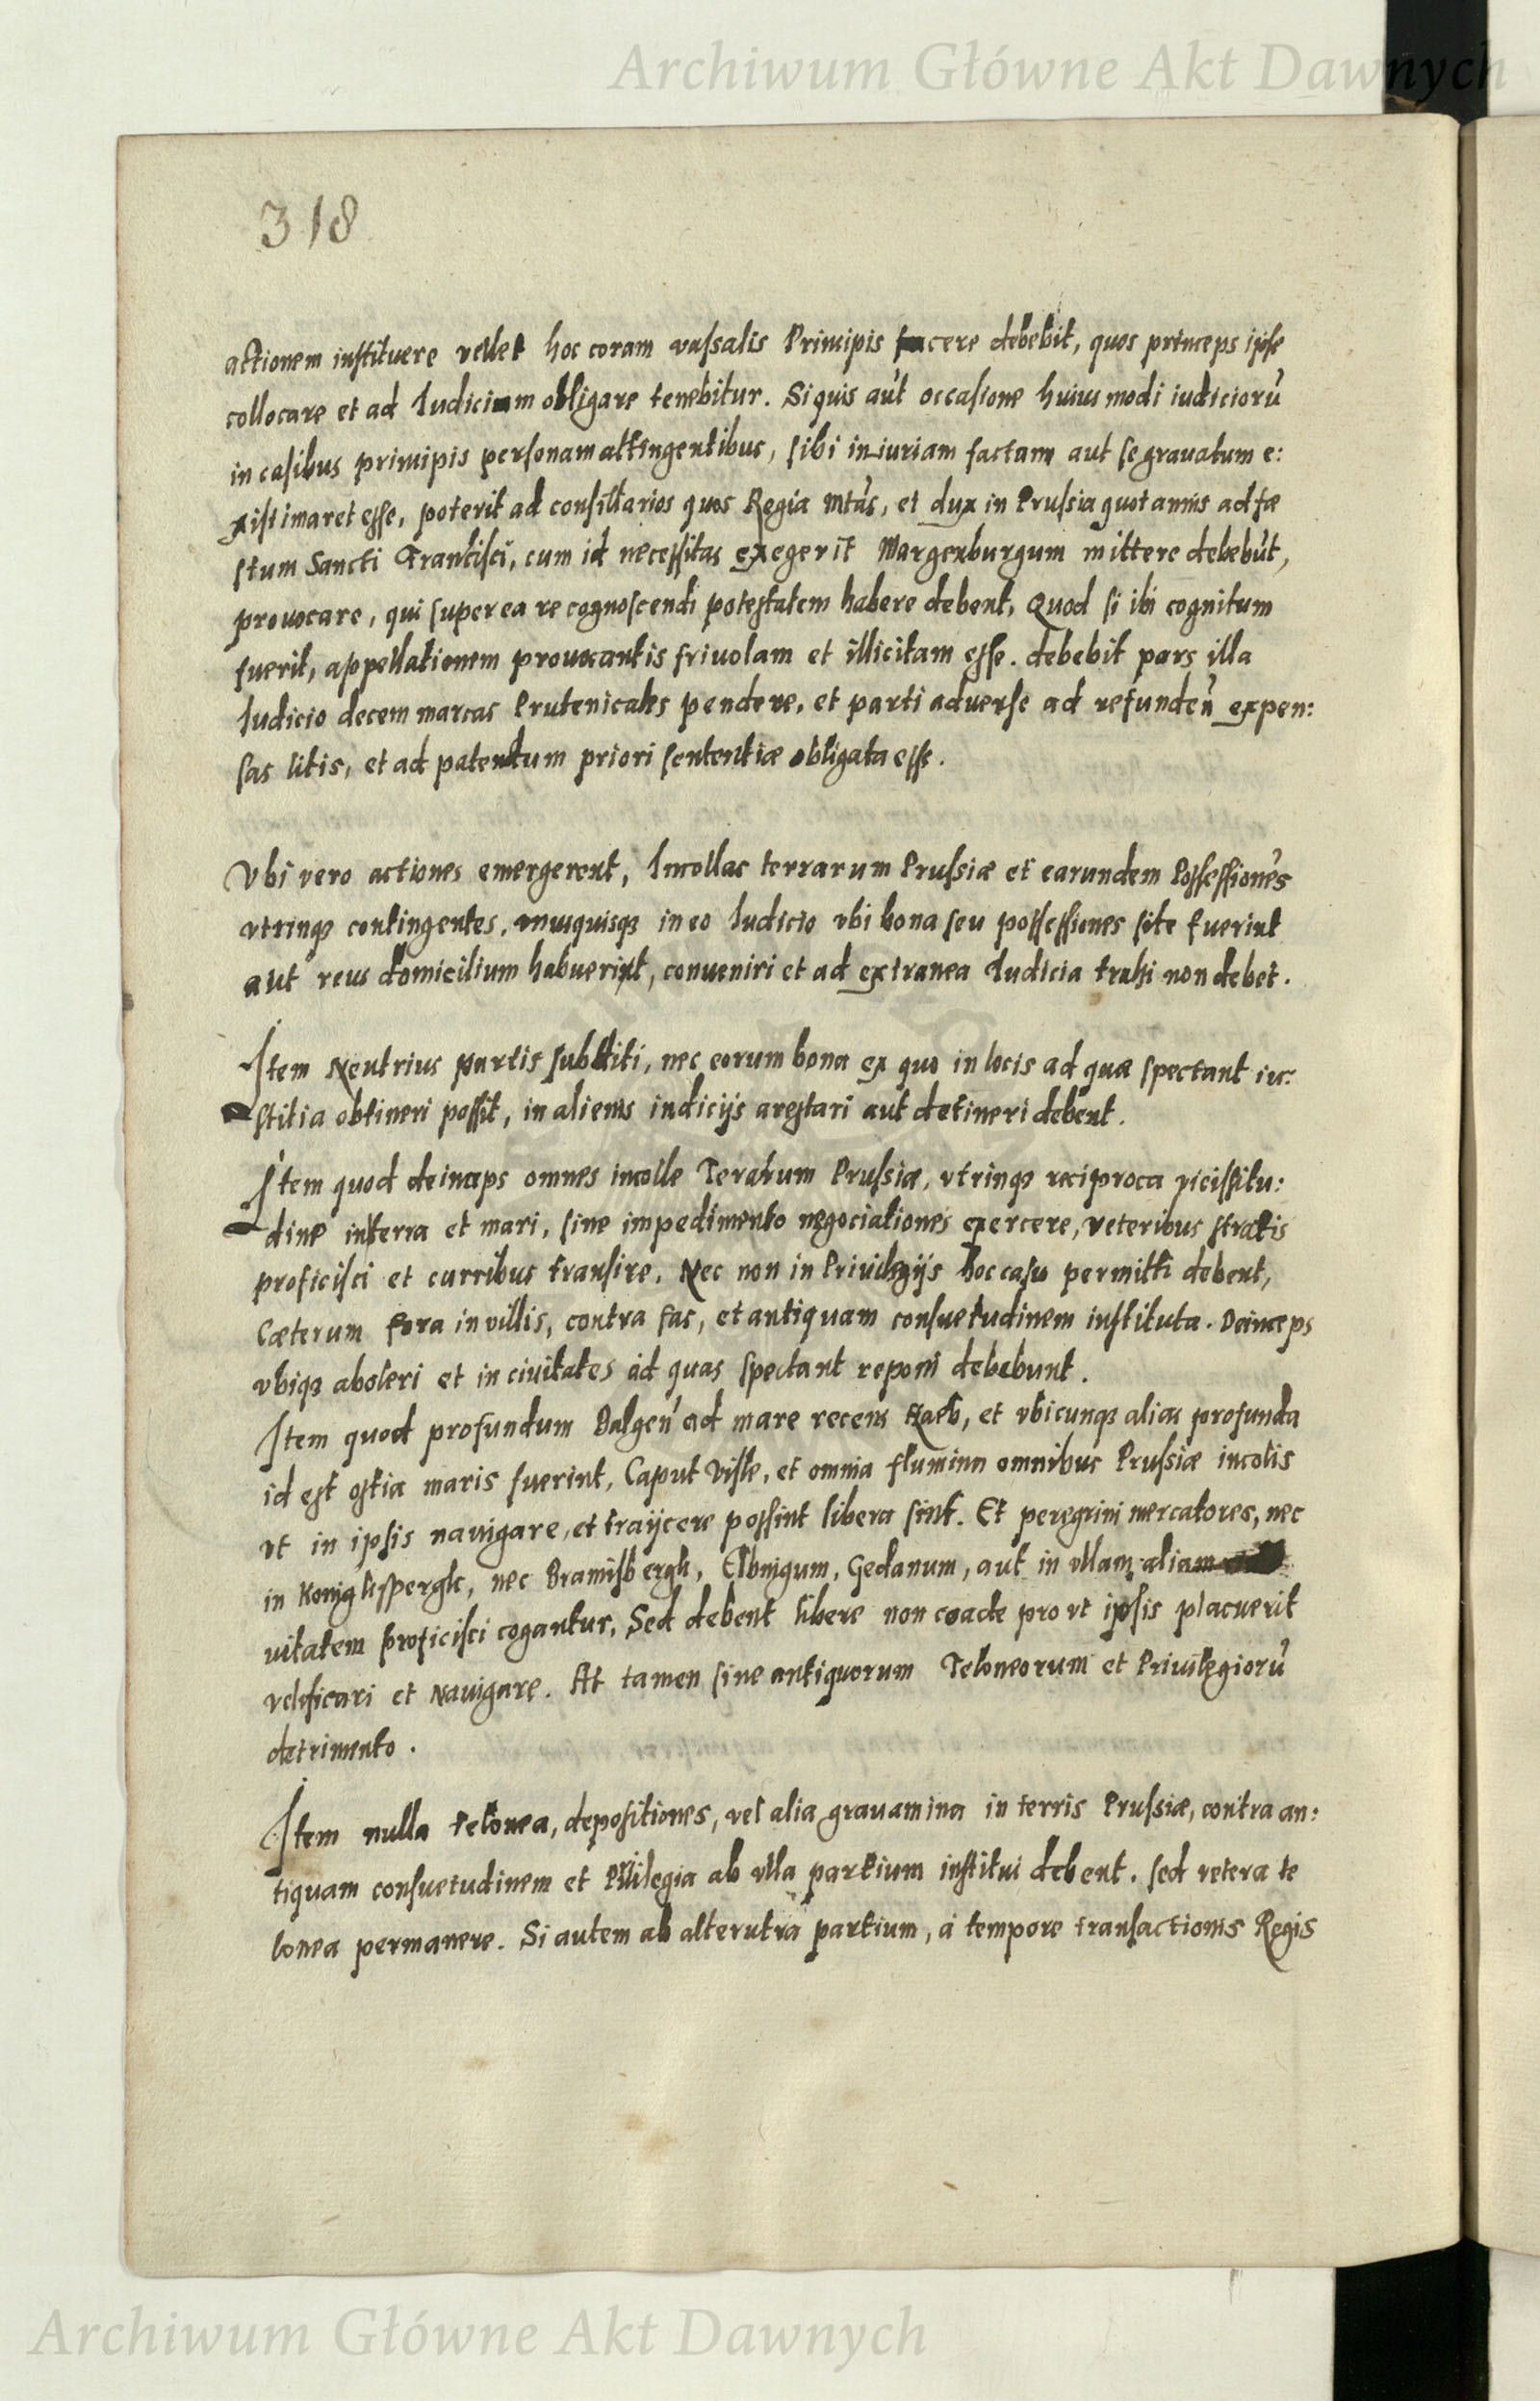 Archiwum Główne Akt Dawnych
318
actionem instituere vellet hoc coram vassalis Principis facere debebit, quos princeps ipse
collocare et ad Iudicium obligare tenebitur. Si quis aut occasione huius modi iudicioru
in casibus principis personam attingentibus, sibi iniuriam factam aut se gravatum e:
xistimaret esse, poterit ad consiliarios quos Regia Mtas, et dux in Prussia quotannis ad fæ
stum Sancti Francisci, cum id necessitas exegerit Margenburgum mittere debebut,
provocare, qui super ea re cognoscendi potestatem habere debent, Quod si ibi cognitum
fuerit, appellationem provocantis frivolam et illicitam esse. debebit pars illa
Iudicio decem marcas Prutenicales pendere, et parti adverse ad refunden expen:
sas litis, et ad patendum priori sententiæ obligata esse.
Vbi vero actiones emergerent, Incollas terrarum Prussiæ et earundem Possessiones
vtrinqз contingentes, vnusquisqз in eo Iudicio vbi bona seu possessiones site fuerint
aut reus domicilium habuerint, conveniri et ad extranea Iudicia trahi non debet.
Item Neutrius partis subditi, nec eorum bona ex quo in locis ad quæ spectant iu:
stitia obtineri possit, in alienis iudicijs arestari aut detineri debent.
Item quod deinceps omnes incolle Terarum Prussiæ, vtrinqз reciproca vicissitu:
dine in terra et mari, sine impedimento negociationes exercere, veteribus stratis
proficisci et curribus transire, Nec non in Privilegijs hoc casu permitti debent,
Cæterum fora in villis, contra fas, et antiquam consuetudinem instituta. Deinceps
vbiqз aboleri et in civitates ad quas spectant reponi debebunt.
Item quod profundum Balgen ad mare recens Haeb, et vbicunqз alias profunda
id est ostia maris fuerint, Caput Visle, et omnia flumina omnibus Prussiæ incolis
vt in ipsis navigare, et traijcere possint libera sint. Et peregrini mercatores, nec
in Konigksspergk, nec Bramisbergk, Elbingum, Gedanum, aut in ullam aliam
vitatem proficisci cogantur, Sed debent libere non coacte pro vt ipsis placuerit
velificari et Navigare. At tamen sine antiquorum Teloneorum et Privilegioru
detrimento.
Item nulla telonea, depositiones, vel alia gravamina in terris Prussiæ, contra an:
tiquam consuetudinem et Privilegia ab vlla partium institui debent. sed vetera te
lonea permanere. Si autem ab alterutra partium, à tempore transactionis Regis
Archiwum Główne Akt Dawnych